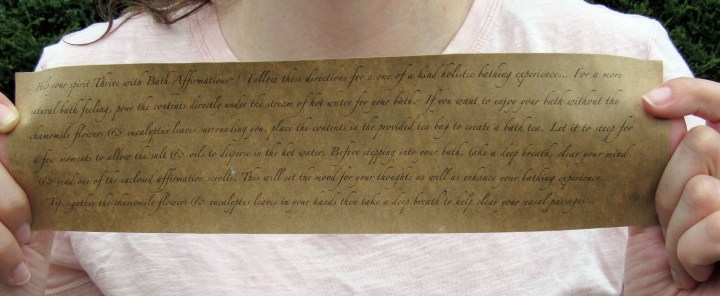 Help your spirit Thrive with Bath Affirmations~! Follow these directions for a one of a kind holistic bathing experience... For a more
natural bath feeling, pour the contents directly under the stream of hot water for your bath. If you want to enjoy your bath without the
chamomile flowers & eucalyptus leaves surrounding you, place the contents in the provided tea bag to create a bath tea. Let it to steep for
a few moments to allow the salt & oils to disperse in the hot water. Before stepping into your bath, take a deep breath, clear your mind
& read one of the enclosed affirmation scrolls. This will set the mood for your thoughts as well as enhance your bathing experience.
Tip...gather the chamomile flowers & eucalyptus leaves in your hands then take a deep breath to help clear your nasal passages...